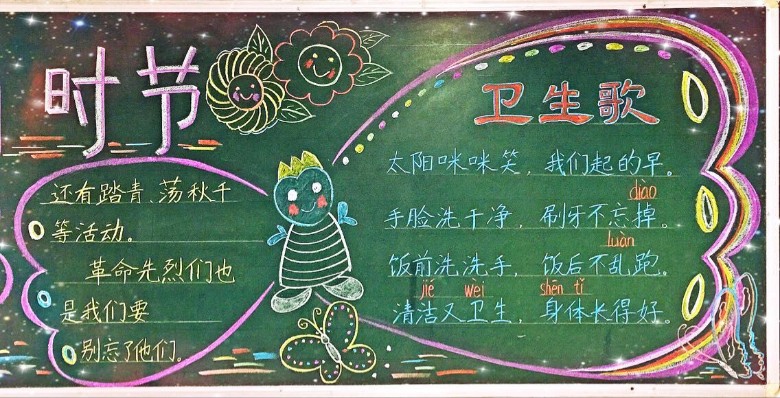 时节
还有踏青、荡秋千
等活动。
革命先烈们也
是我们要
别忘了他们。
卫生歌
太阳咪咪笑，我们起的早。
diào
手脸洗干净，刷牙不忘掉。
luàn
饭前洗洗手，饭后不乱跑。
jié wei shēn tǐ
清洁又卫生，身体长得好。